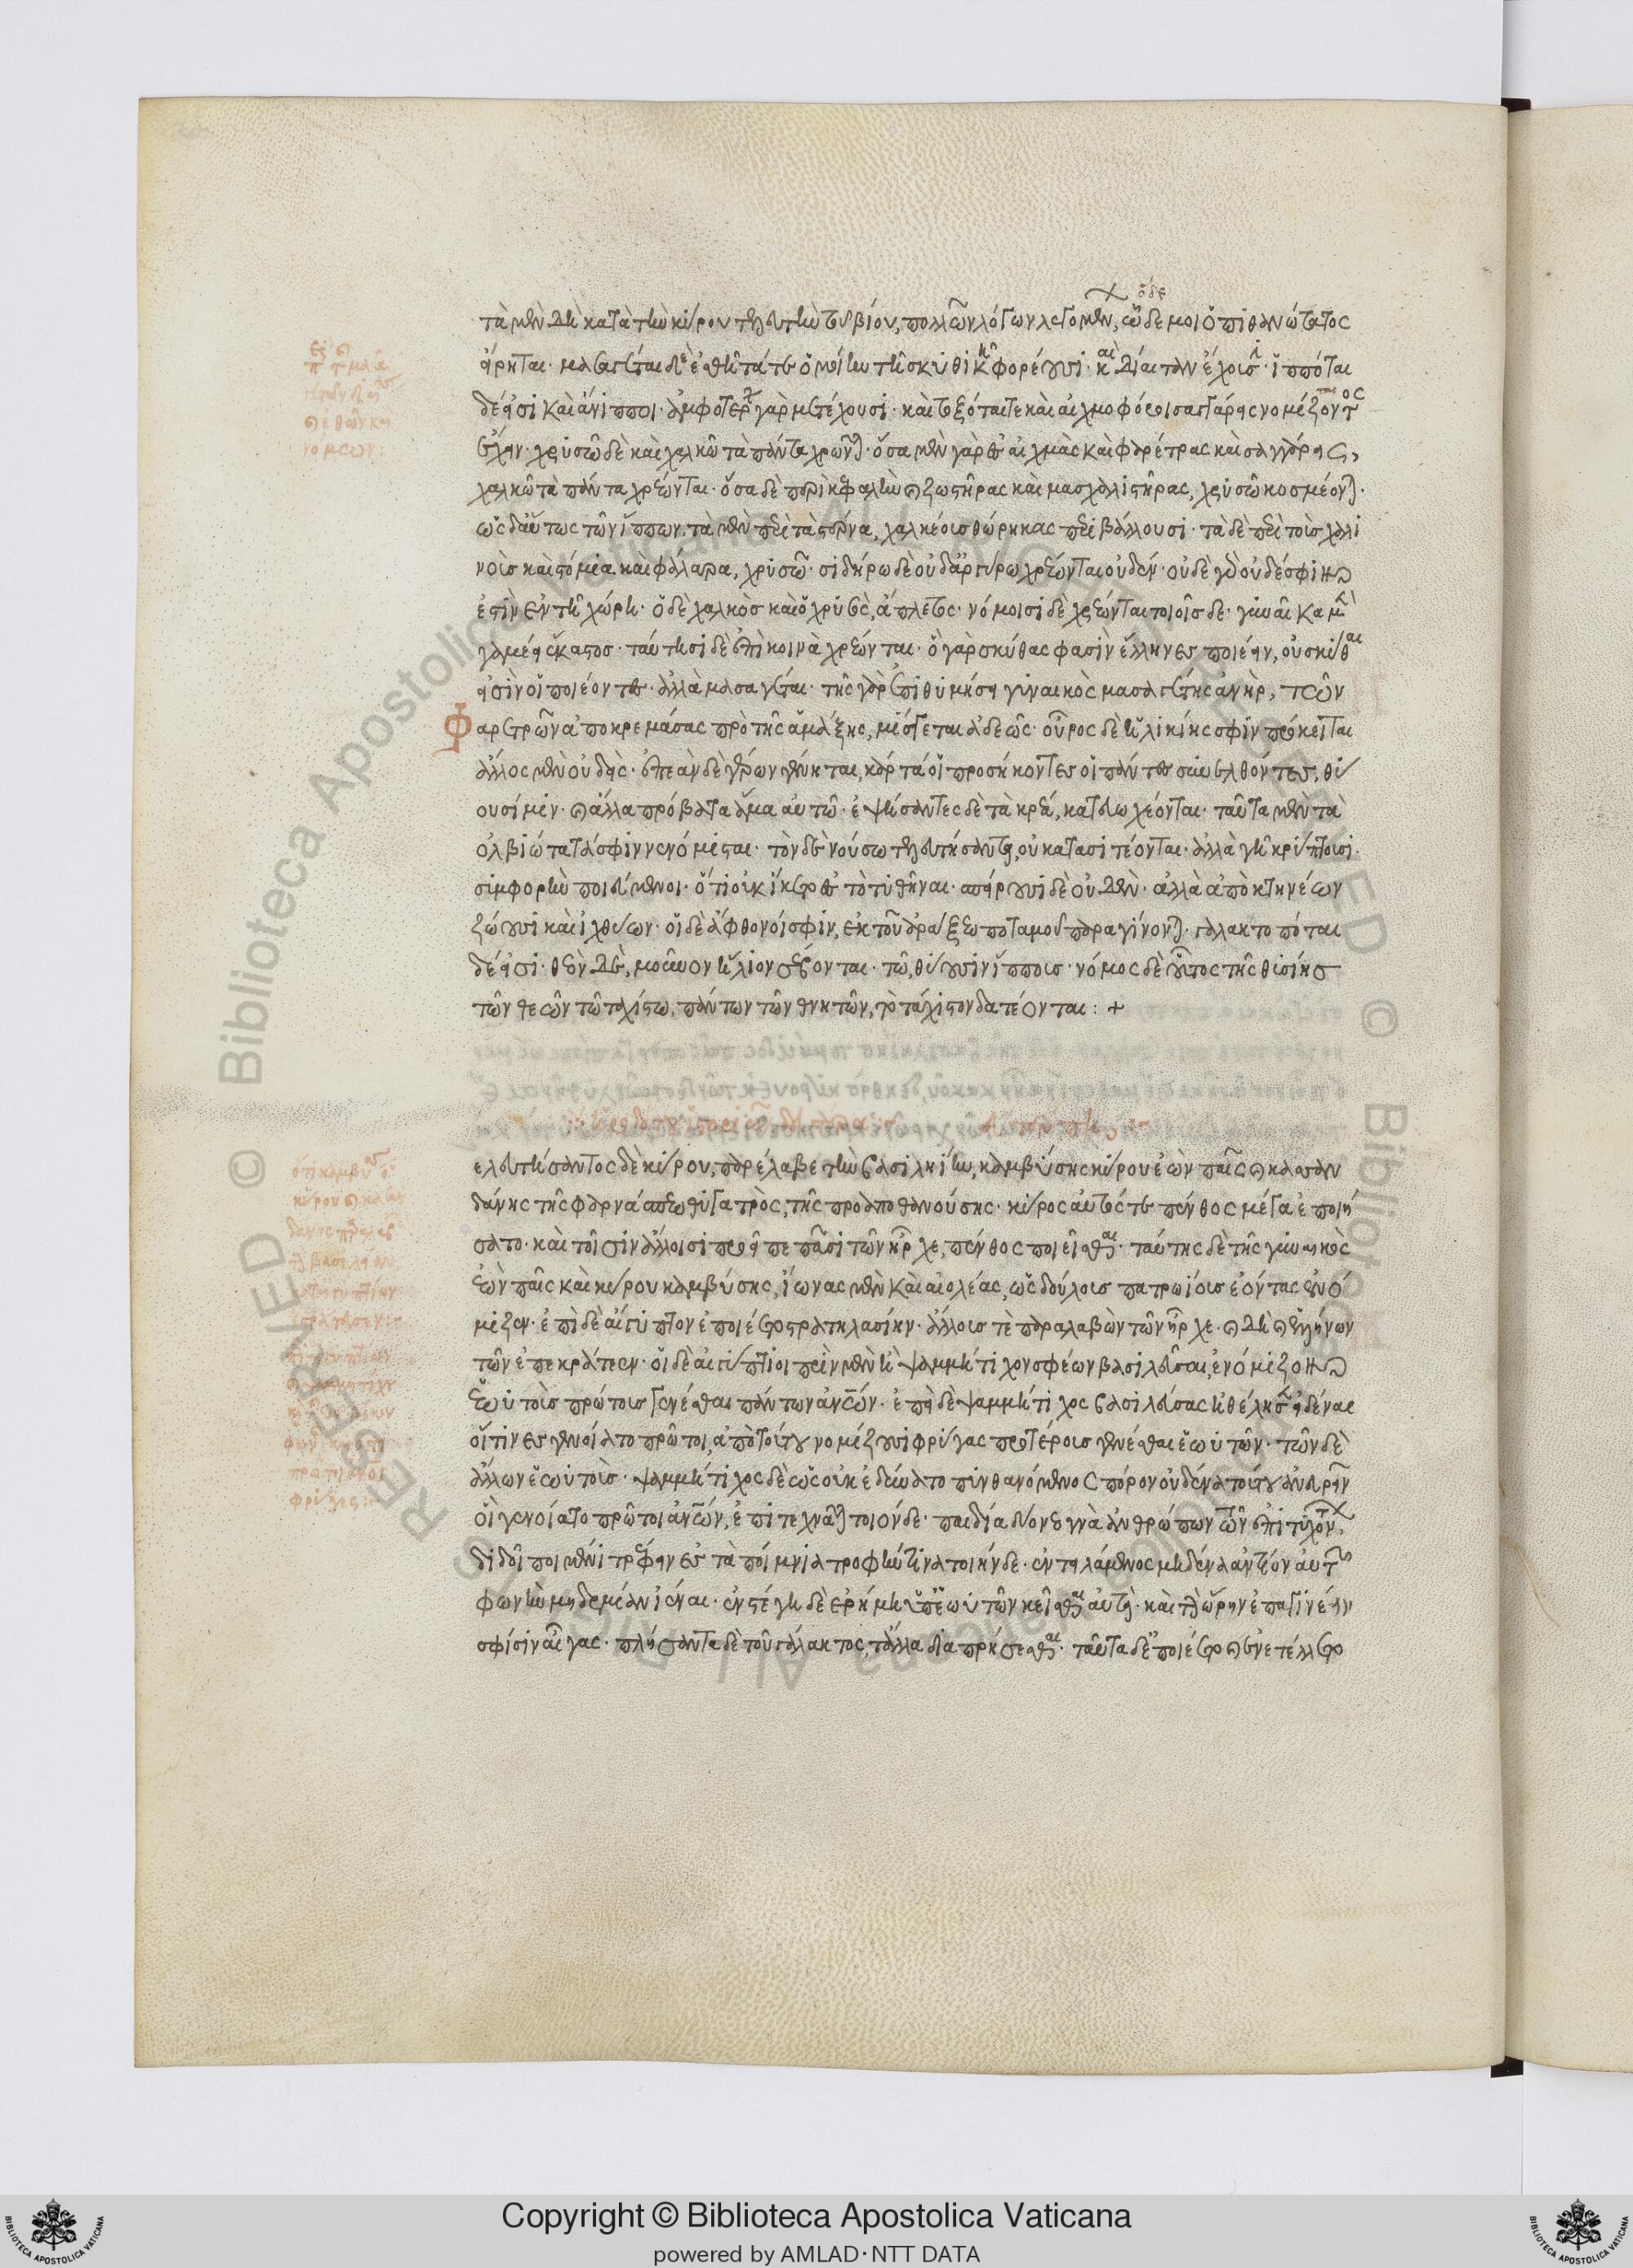 τὰ μὲν δὴ κατὰ τὴν κύρου τελευτὴν τοῦ βίου, πολλῶν λόγων λεγομένων, ὧδε μοι ὁ πιθανώτατος
ὅδε
εἴρηται· μασαγέται δὲ ἐσθῆτά τε ὁμοίην τῆ σκυθικῆ φορέουσι· καὶ δίαιταν ἔχουσι· ἱππόται
δέ εἰσι καὶ ἄνιπποι· ἀμφοτέρων γὰρ μετέχουσι· καὶ τοξόται τε καὶ αἰχμοφόροι σαγάρεις νομίζοντες
ἔχειν· χρυσῶ δὲ καὶ χαλκῶ τὰ πάντα χρῶνται· ὅσα μὲν γὰρ ἐς αἰχμὰς καὶ φαρέτρας καὶ σαγάρεις,
χαλκῶ τὰ πάντα χρέωνται· ὅσα δὲ περὶ κεφαλὴν καὶ ζωστῆρας καὶ μασχαλιστῆρας, χρυσῶ κοσμέονται·
ὣς δ' αὔτως τῶν ἵππων, τὰ μὲν περὶ τὰ στέρνα, χαλκέους θώρηκας περιβάλλουσι· τὰ δὲ περὶ τοὺς χαλι
νοὺς καὶ στόμια καὶ φάλαρα, χρυσῶ· σιδήρω δὲ οὐδ' ἀργύρω χρέωνται οὐδέν· οὐδὲ γὰρ οὐδέ σφι
ἔστιν ἐν τῆ χώρη· ὁ δὲ χαλκὸς καὶ ὁ χρυσὸς, ἄπλετος· νόμοισι δὲ χρέωνται τοιοῖσδε· γυναῖκα μὲν
γαμέει ἕκαστος· ταύτησι δὲ ἐπίκοινα χρέωνται· ὃ γὰρ σκύθας φασὶν ἕλληνες ποιέειν, οὐ σκύθαι
εἰσὶν οἱ ποιέοντες· ἀλλὰ μασαγέται· τῆς γὰρ ἐπιθυμήση γυναικὸς μασαγέτης ἀνὴρ, τὸν
φαρετρεῶνα ἀποκρεμάσας πρὸ τῆς ἁμάξης, μίσγεται ἀδεῶς· οὖρος δὲ ἡλικίης σφιν πρόκειται
ἄλλος μὲν οὐδείς· ἐπεὰν δὲ γέρων γένηται κάρτα, οἱ προσήκοντές οἱ πάντες συνελθόντες, θύ
ουσί μιν· καὶ ἄλλα πρόβατα ἅμα αὐτῶ· ἑψήσαντες δὲ τὰ κρέα, κατευωχέονται· ταῦτα μὲν τὰ
ὀλβιώτατά σφιν νενόμισται· τὸν δὲ νούσω τελευτήσαντα, οὐ κατασιτέονται· ἀλλὰ γῆ κρύπτουσι·
συμφορὴν ποιεύμενοι· ὅτι οὐκ ἵκετο ἐς τὸ τυθῆναι· σπείρουσι δὲ οὐδέν· ἀλλὰ ἀπὸ κτηνέων
ζώουσι καὶ ἰχθύων· οἱ δὲ ἄφθονοί σφιν, ἐκ τοῦ ἀράξεω ποταμοῦ παραγίνονται· γαλακτοπόται
δέ εἰσι· θεῶν δὲ, μοῦνον ἥλιον σέβονται· τῶ, θύουσιν ἵππους· νόμος δὲ οὗτος τῆς θυσίης
τῶν θεῶν τῶ ταχίστω, πάντων τῶν θνητῶν, τὸ τάχιστον δατέονται: +
ελευτήσαντος δὲ κύρου, παρέλαβε τὴν βασιληίην, καμβύσης κύρου ἐὼν παῖς καὶ κασσαν
δάνης τῆς φαρνάσπεω θυγατρὸς, τῆς προαποθανούσης· κῦρος αὐτός τε πένθος μέγα ἐποιή
σατο· καὶ τοῖσιν ἄλλοισι προεῖπε πᾶσι τῶν ἦρχε, πένθος ποιεῖσθαι· ταύτης δὲ τῆς γυναικὸς
ἐὼν παῖς καὶ κύρου καμβύσης, ἴωνας μὲν καὶ αἰολέας, ὡς δούλους πατρωίους ἐόντας ἐνό
μιζεν· ἐπὶ δὲ αἴγυπτον ἐποιέετο στρατηλασίην· ἄλλους τε παραλαβὼν τῶν ἦρχε· καὶ δὴ καὶ ἑλλήνων
τῶν ἐπεκράτεεν· οἱ δὲ αἰγύπτιοι πρὶν μὲν ἢ ψαμμήτιχον σφέων βασιλεῦσαι, ἐνόμιζον
ἑωυτοὺς πρώτους γενέσθαι πάντων ἀνθρώπων· ἐπεὶ δὲ ψαμμήτιχος βασιλεύσας ἠθέλησε εἰδέναι
οἵτινες γενοίατο πρῶτοι, ἀπὸ τούτου νομίζουσι φρύγας προτέρους γενέσθαι ἑωυτῶν· τῶν δὲ
ἄλλων ἑωυτούς· ψαμμήτιχος δὲ ὡς οὐκ ἐδύνατο πυνθανόμενος πόρον οὐδένα τούτου ἀνευρεῖν
οἳ γενοίατο πρῶτοι ἀνθρώπων, ἐπιτεχνᾶται τοιόνδε· παιδία δύο νεογνὰ ἀνθρώπων τῶν ἐπιτυχόντων,
διδοῖ ποιμένι τρέφειν ἐς τὰ ποίμνια τροφήν τινα τοιήνδε· ἐντειλάμενος μηδένα ἀντίον αὐτῶν
φωνὴν μηδεμίαν ἱέναι· ἐν στέγη δὲ ἐρήμη ἐπ' ἑωυτῶν κεῖσθαι αὐτά· καὶ τὴν ὥρην ἐπαγινέειν
σφίσιν αἶγας· πλήσαντα δὲ τοῦ γάλακτος, τἆλλα διαπρήσσεσθαι· ταῦτα δ' ἐποιέετο καὶ ἐνετέλλετο
Copyright © Biblioteca Apostolica Vaticana
powered by AMLAD·NTT DATA